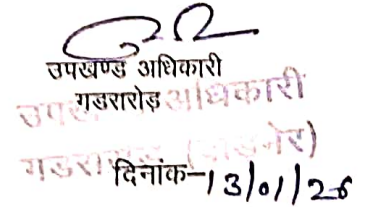 उपखण्ड अधिकारी
गडरारोड़
उपखण्ड अधिकारी
गडरारोड़ (बाड़मेर)
दिनांक-13/01/26